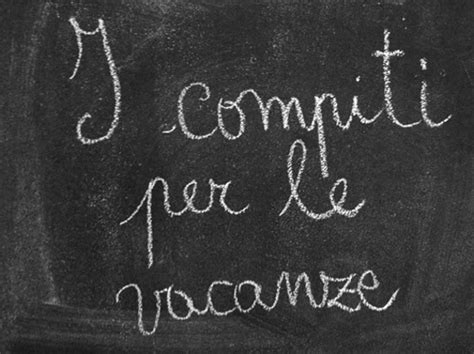 I compiti
per le
vacanze